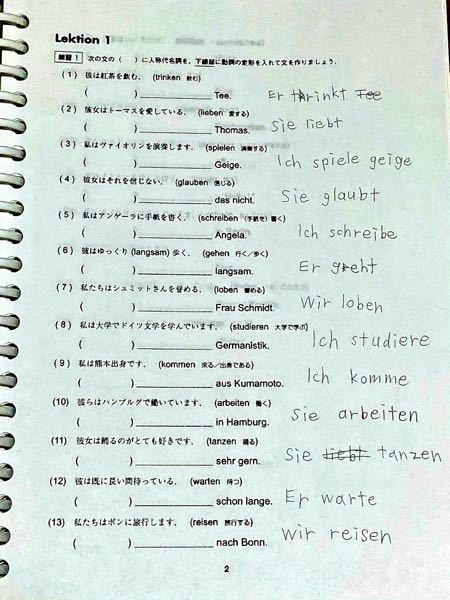 Lektion 1
練習1 次の文の ( ) に人称代名詞を、下線部に動詞の定形を入れて文を作りましょう.
(1) 彼は紅茶を飲む. (trinken 飲む)
( ) ____________ Tee. Er trinkt Tee
(2) 彼女はトーマスを愛している. (lieben 愛する)
( ) ____________ Thomas. Sie liebt
(3) 私はヴァイオリンを演奏します. (spielen 演奏する)
( ) ____________ Geige. Ich spiele geige
(4) 彼女はそれを信じない. (glauben 信じる)
( ) ____________ das nicht. Sie glaubt
(5) 私はアンゲーラに手紙を書く. (schreiben (手紙を) 書く)
( ) ____________ Angela. Ich schreibe
(6) 彼はゆっくり (langsam) 歩く. (gehen 行く/歩く)
( ) ____________ langsam. Er geht
(7) 私たちはシュミットさんを誉める. (loben 誉める)
( ) ____________ Frau Schmidt. Wir loben
(8) 私は大学でドイツ文学を学んでいます. (studieren 大学で学ぶ)
( ) ____________ Germanistik. Ich studiere
(9) 私は熊本出身です. (kommen 来る/出身である)
( ) ____________ aus Kumamoto. Ich komme
(10) 彼らはハンブルグで働いています. (arbeiten 働く)
( ) ____________ in Hamburg. Sie arbeiten
(11) 彼女は踊るのがとても好きです. (tanzen 踊る)
( ) ____________ sehr gern. Sie liebt tanzen
(12) 彼は既に長い間待っている. (warten 待つ)
( ) ____________ schon lange. Er warte
(13) 私たちはボンに旅行します. (reisen 旅行する)
( ) ____________ nach Bonn. Wir reisen
2